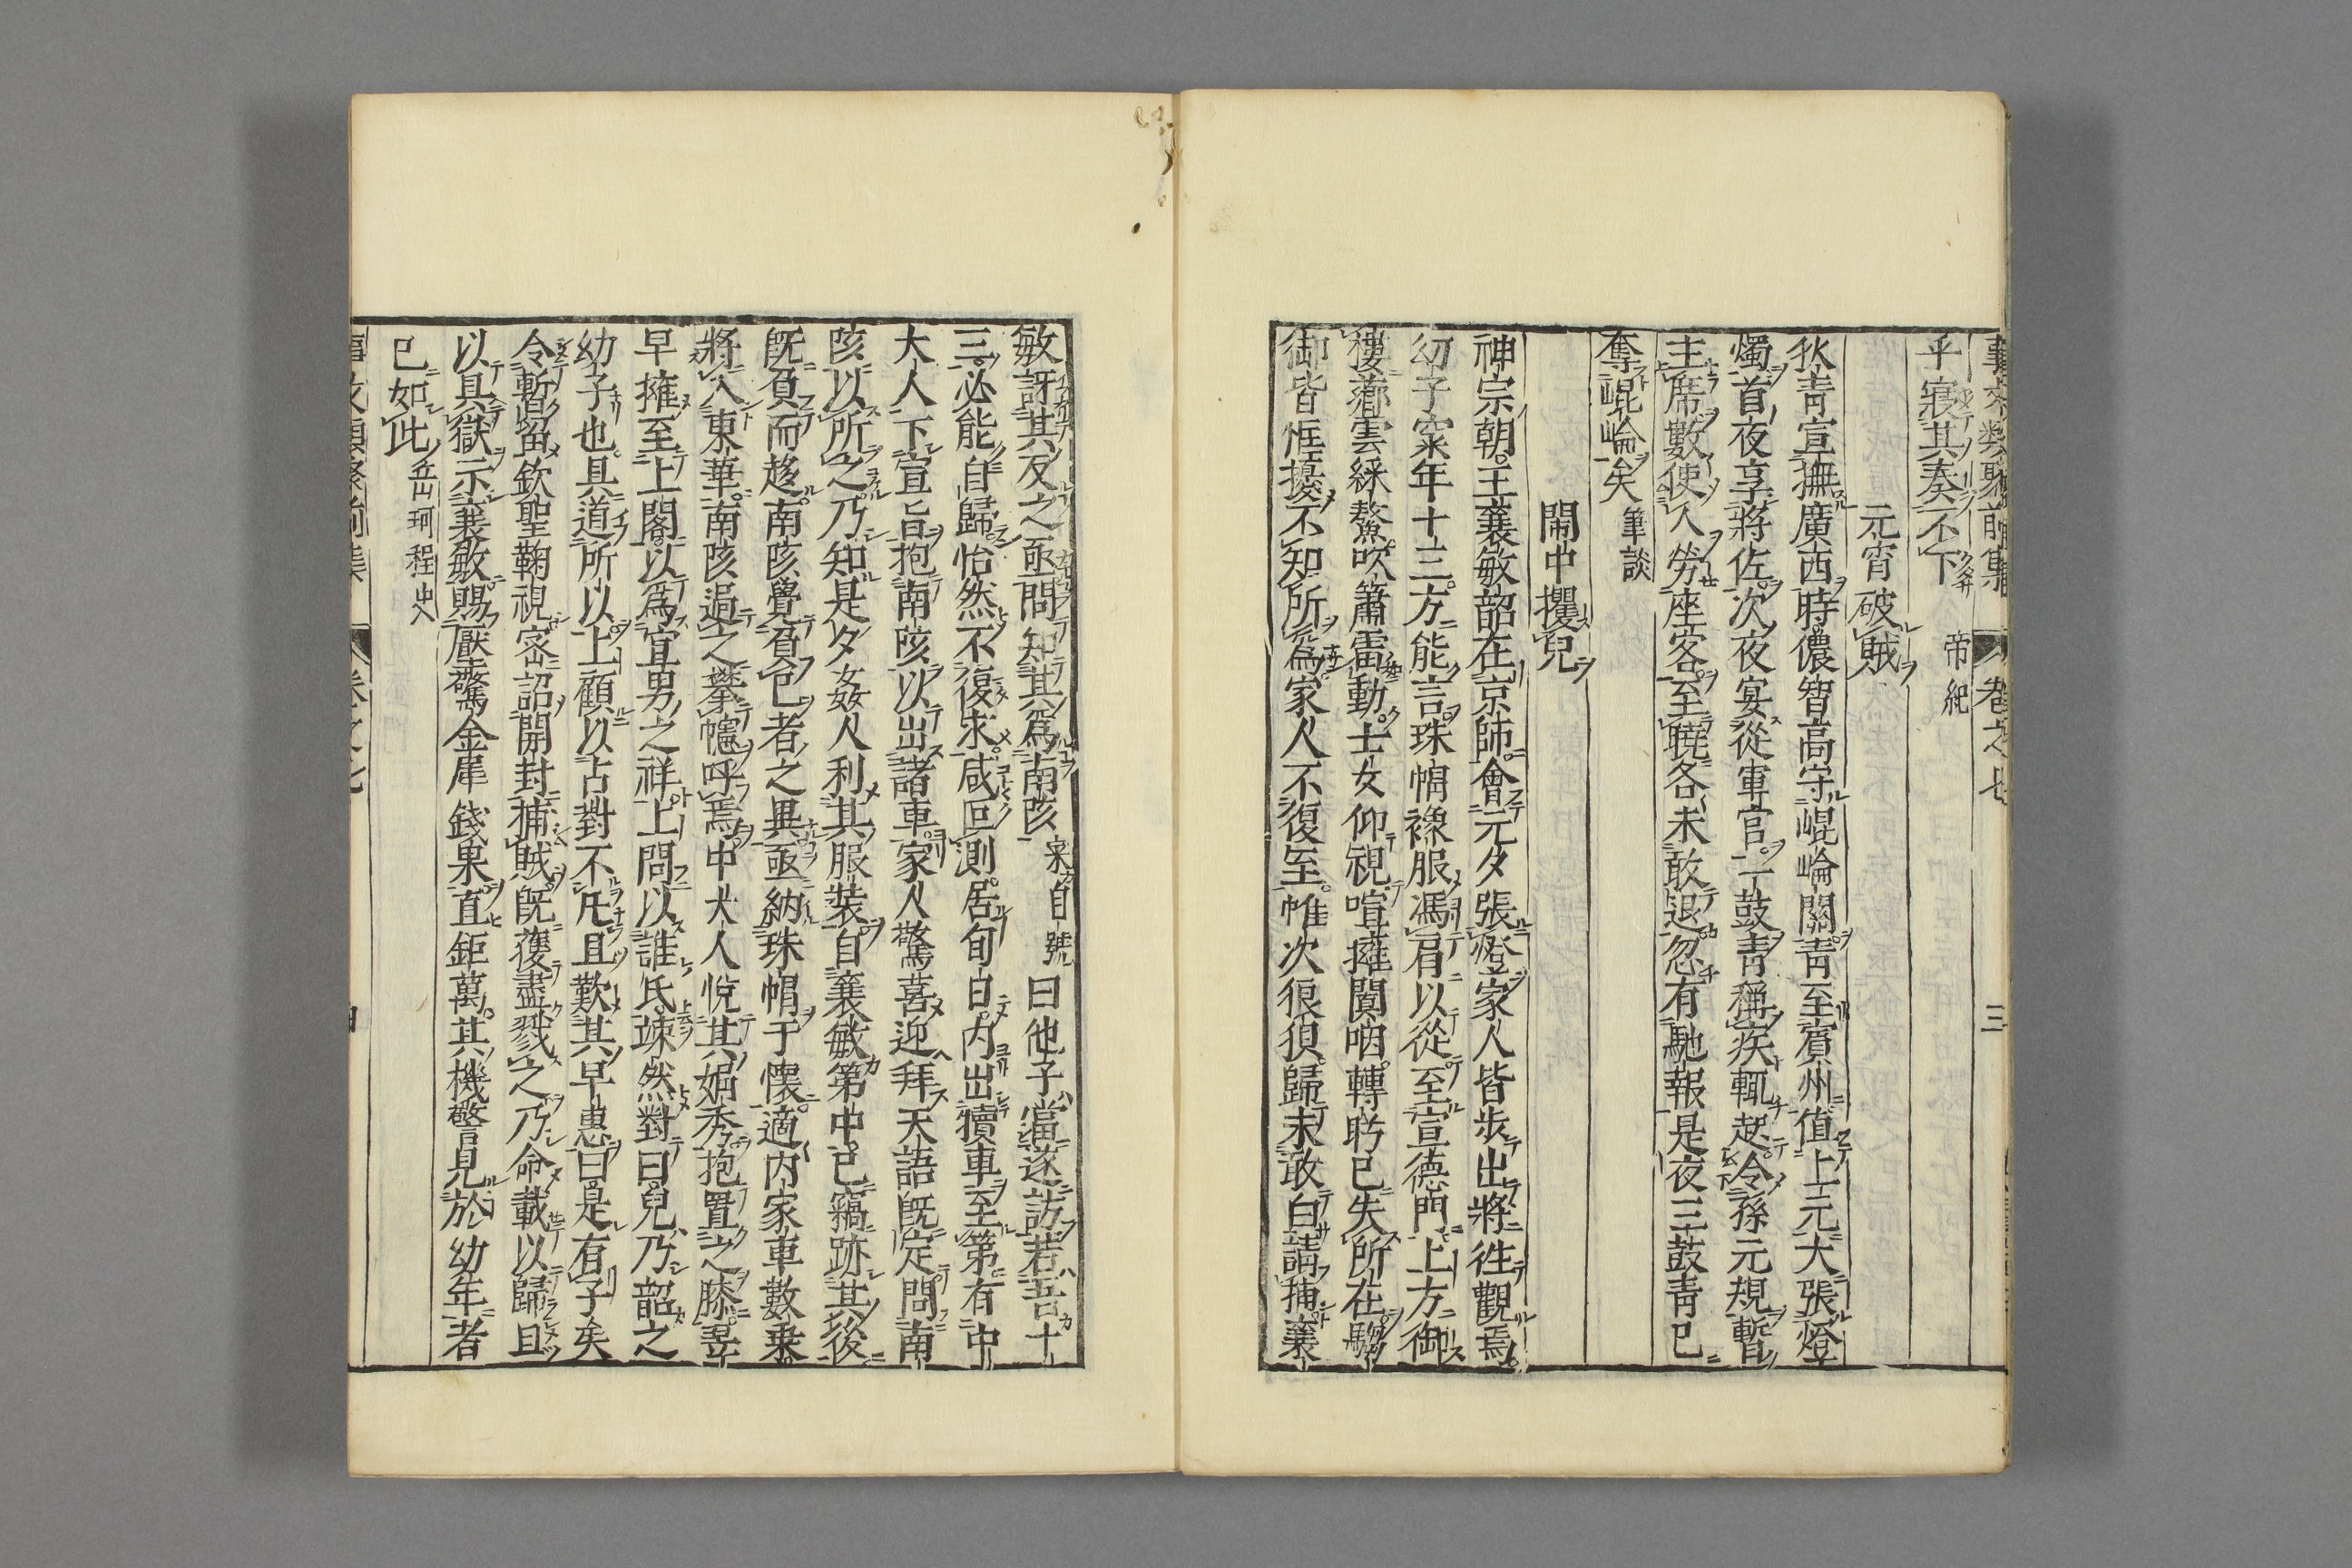 事文類聚前集 卷之七 三
乎寢其奏不下 帝紀
元宵破賊
狄青宣撫廣西時儂智高守崐崘關青至賓州值上元大張燈
燭首夜享將佐次夜宴從軍官二鼓青稱疾輒起令孫元規暫
主席數使人勞座客至曉各未敢退忽有馳報是夜三鼓青已
奪崐崘矣 筆談
閙中攫兒
神宗朝王襄敏韶在京師會元夕張燈家人皆步出將徃觀焉
幼子寀年十三方能言珠帽襐服馮肩以從至宣德門上方御
樓薌雲綵鰲吹簫雷動士女仰視喧擁闐咽轉盻已失所在騶
御皆恇擾不知所爲家人不復至帷次狼狽歸未敢白請捕襄
敏訝其反之亟問知其爲南陔 寀自號 曰他子當遂訪若吾十
三必能自歸怡然不復求咸叵測居旬日内出犢車至第有中
大人下宣旨抱南陔以出諸車家人驚喜迎拜天語既定問南
陔以所之乃知是夕姦人利其服裝自襄敏第中已竊跡其後
既負而趍南陔覺負已者之異亟納珠帽于懷適内家車數乘
將入東華南陔過之攀幰呼焉中大人悅其娟秀抱置之膝翌
早擁至上閤以爲宜男之祥上問以誰氏竦然對曰兒乃韶之
幼子也具道所以上顧以占對不凡且歎其早惠曰是有子矣
令暫留欽聖鞠視宻詔開封捕賊既獲盡戮之乃命載以歸且
以具獄示襄敏賜壓驚金犀錢果直鉅萬其機警見於幼年者
已如此 岳珂桯史
事文類聚前集 卷之七